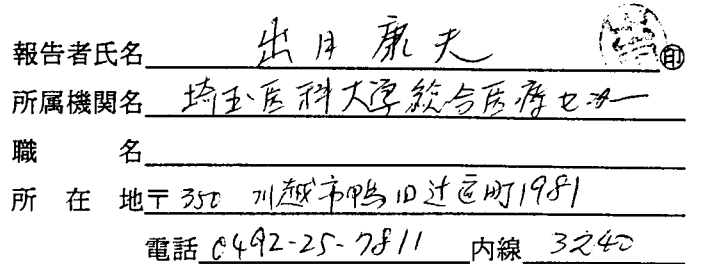 報告者氏名 出月康夫 ㊞
所属機関名 埼玉医科大学総合医療センター
職 名
所在地〒 350 川越市鴨田辻道町1981
電話 0492-25-7811 内線 3240